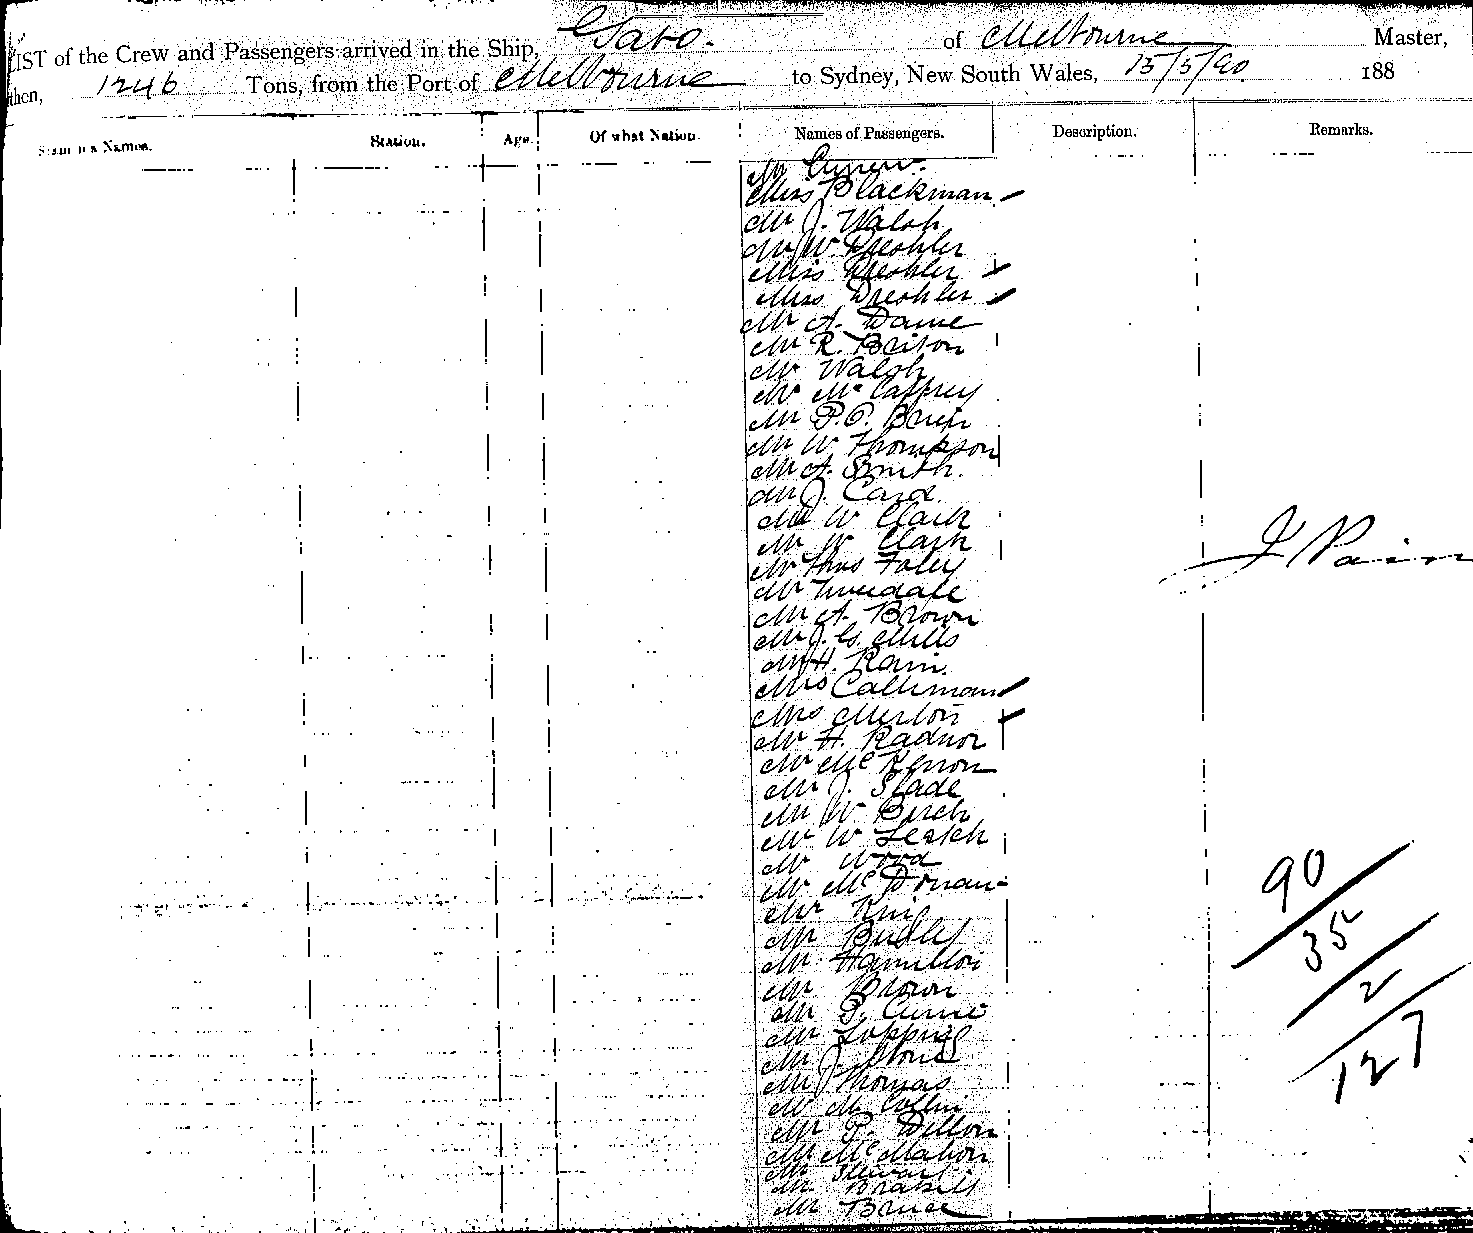 LIST of the Crew and Passengers arrived in the Ship, Gabo. of Melbourne Master,
then, 1246 Tons, from the Port of Melbourne to Sydney, New South Wales, 15/5/90 188
Seaman's Names. Station. Age. Of what Nation. Names of Passengers. Description. Remarks.
Mr
Miss Blackman
Mr J. Walsh
Mr W. Dreshler
Miss Dreshler
Miss Dreshler
Mr A. Dawe
Mr R. Briton
Mr Walsh
Mr McCaffrey
Mr P.O. Brien
Mr W Thompson
Mr A. Smith.
Mr J.
Mr W Clark
Mr W Clark
Mr Thos Foley
Mr Tweedale
Mr A. Brown
Mr J. G. Mills
Mr H.
Mrs Calliman
Mrs Merton
Mr H. Radnor
Mr McKennon
Mr J. Slade
Mr W Birch
Mr W Leach
Mr Wood
Mr
Mr King
Mr
Mr Hamilton
Mr Brown
Mr P. Currie
Mr Topping
Mr J.
Mr J Thomas
Mr M.
Mr P. Dillon
Mr McMahon
Mr Stewart
Mr
Mr Bruce
J Pain
90
35
2
127